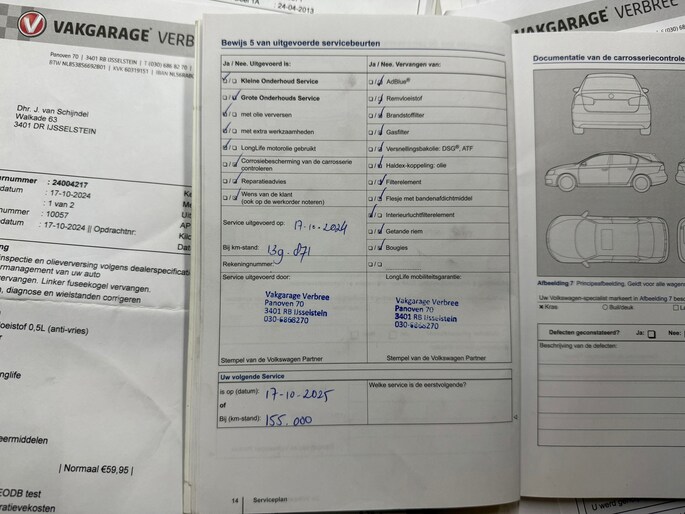 24-04-2013
VAKGARAGE VERB
Panoven 70 | 3401 RB IJSSELSTEIN | T (030) 686 82 70
Dhr. J. van Schijndel
Walkade 63
3401 DR IJSSELSTEIN
: 24004217
datum : 17-10-2024
: 1 van 2
nummer : 10057
datum : 17-10-2024 || Opdrachtnr:
inspectie en olieverversing volgens dealerspecific
management van uw auto
vervangen. Linker fuseekogel vervangen.
, diagnose en wielstanden corrigeren
oeistof 0,5L (anti-vries)
nglife
eermiddelen
| Normaal €59,95 |
EODB test
ratievekosten
Bewijs 5 van uitgevoerde servicebeurten
Ja / Nee. Uitgevoerd is:
Kleine Onderhoud Service
Grote Onderhouds Service
met olie verversen
met extra werkzaamheden
LongLife motorolie gebruikt
Corrosiebescherming van de carrosserie
controleren
Reparatieadvies
Wens van de klant
(ook op de werkorder noteren)
Service uitgevoerd op: 17-10-2024
Bij km-stand:
Rekeningnummer:
Service uitgevoerd door:
Vakgarage Verbree
Panoven 70
3401 RB IJsselstein
030-6868270
Stempel van de Volkswagen Partner
Ja / Nee. Vervangen van:
AdBlue®
Remvloeistof
Brandstoffilter
Gasfilter
Versnellingsbakolie: DSG®, ATF
Haldex-koppeling: olie
Filterelement
Flesje met bandenafdichtmiddel
Interieurluchtfilterelement
Getande riem
Bougies
LongLife mobiliteitsgarantie:
Vakgarage Verbree
Panoven 70
3401 RB IJsselstein
030-6868270
Stempel van de Volkswagen Partner
Uw volgende Service
is op (datum): 17-10-2025
of
Bij (km-stand): 155.000
Welke service is de eerstvolgende?
14 Serviceplan
VAKGARAGE VERBREE
Documentatie van de carrosseriecontrole
Afbeelding 7 Principeafbeelding. Geldt voor alle wagen
Uw Volkswagen-specialist markeert in Afbeelding 7 besc
Kras Buil/deuk
Defecten geconstateerd? Ja: Nee:
Beschrijving van de defecten: